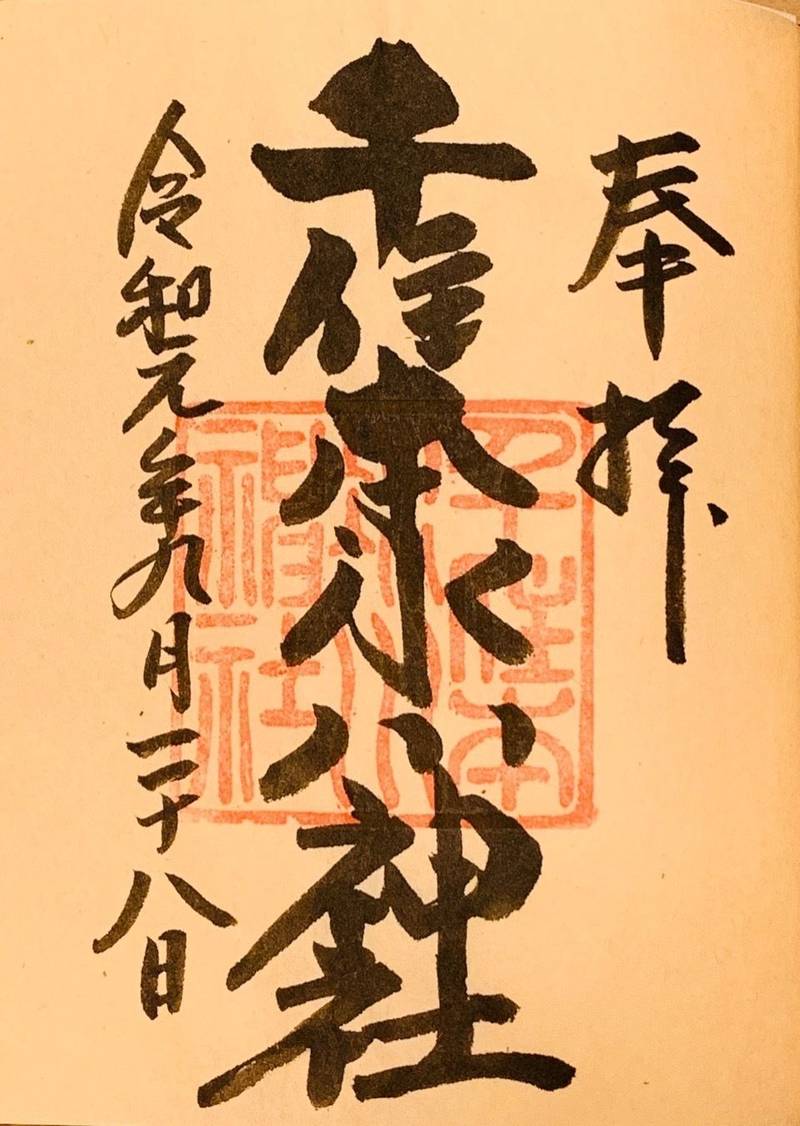 奉拝
千住本氷川神社
令和元年九月二十八日
千住本
神社